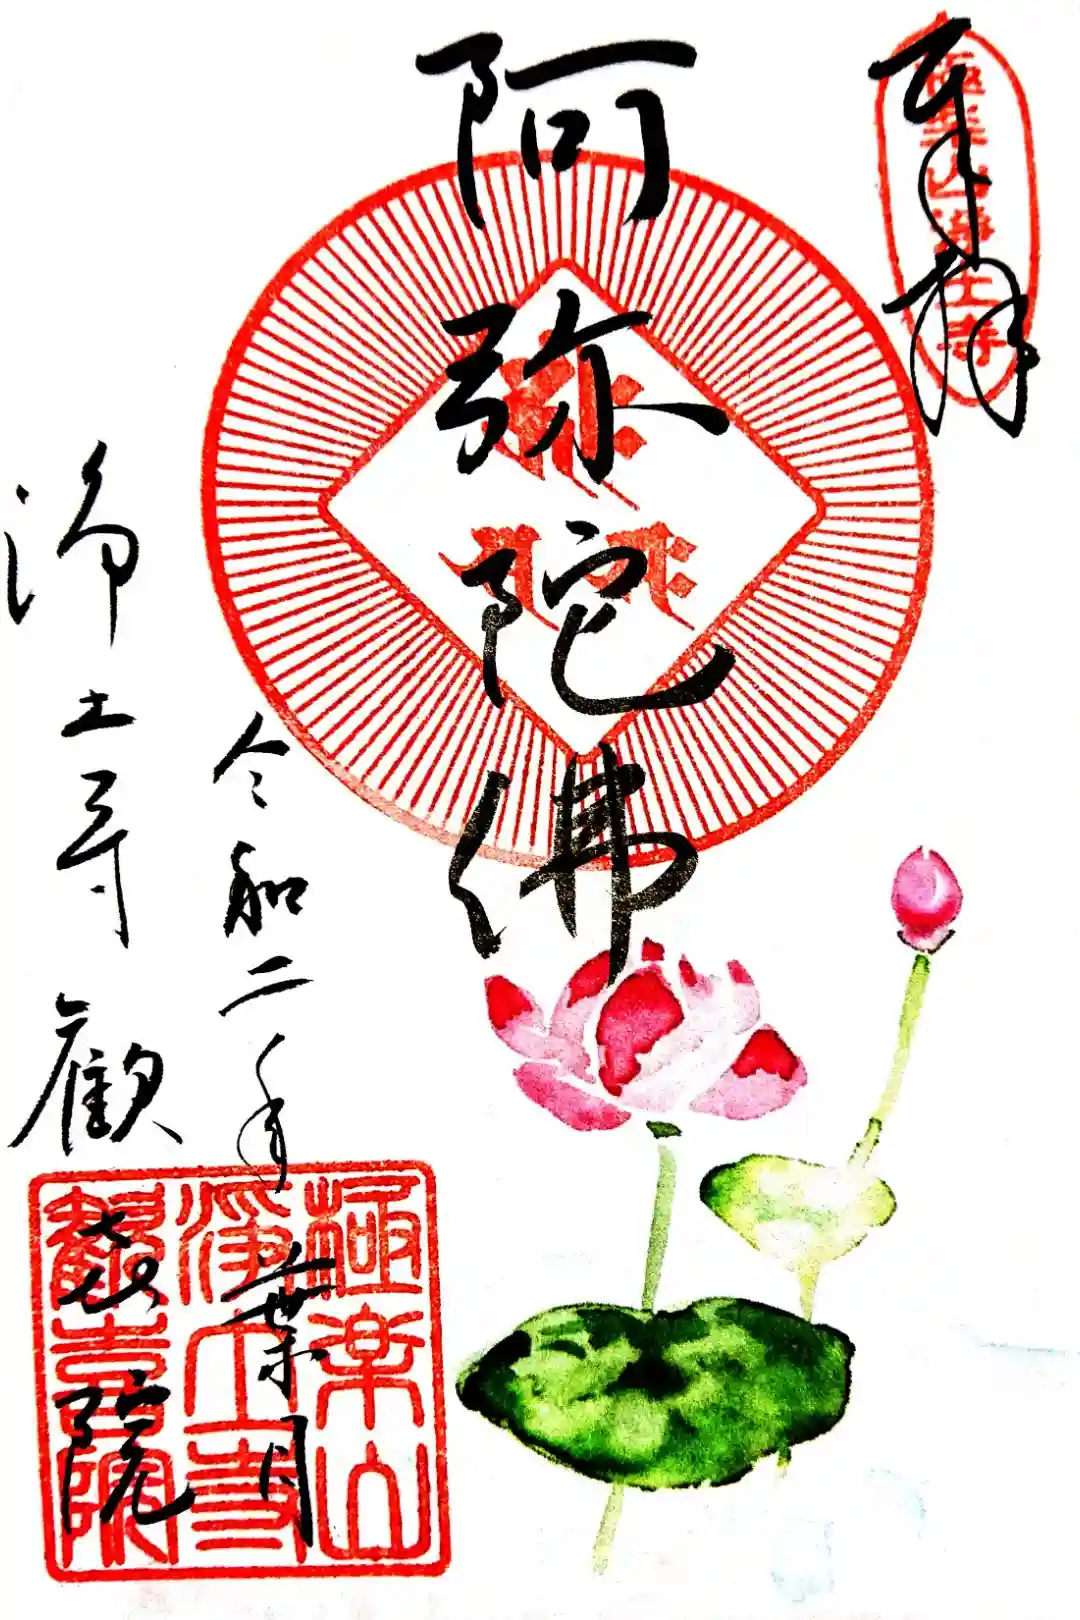 奉拝
極楽山浄土寺
阿弥陀佛
令和二年葉月
浄土寺歡喜院
極楽山
淨土寺
歡喜院